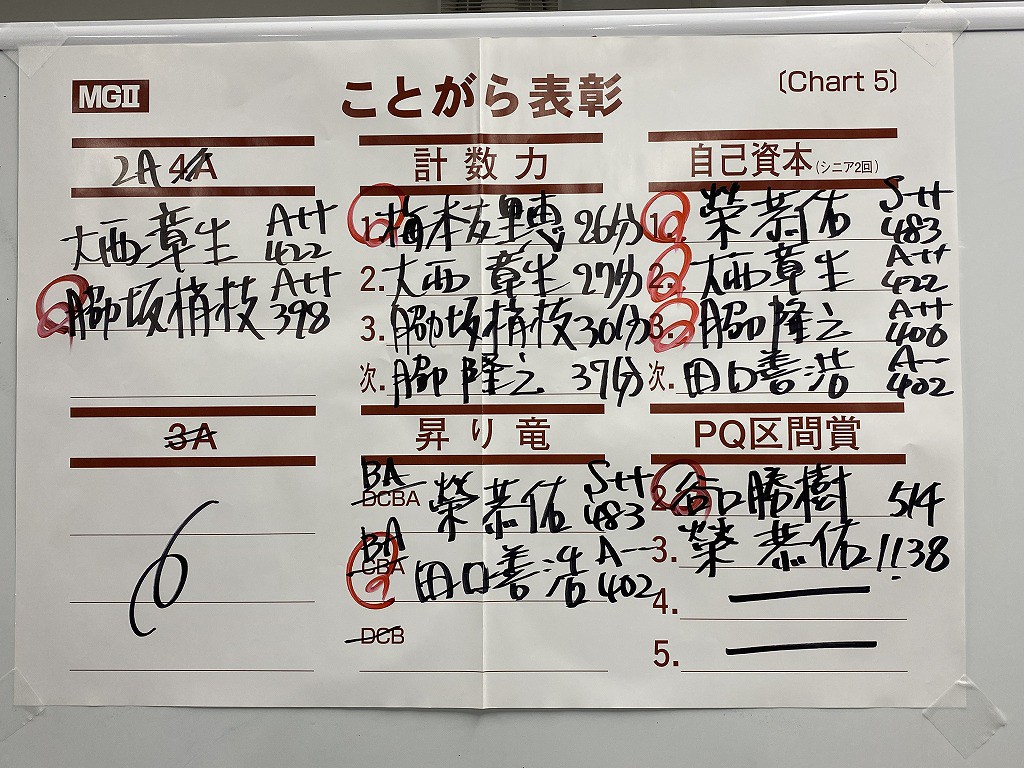 MGⅡ
ことがら表彰
〔Chart 5〕
2A 4A
大西章生 A++ 422
脇坂梢枝 A++ 398
3A
計数力
1. 梅本友里恵 26分
2. 大西章生 27分
3. 脇坂梢枝 30分
次. 脇隆之 37分
自己資本(シニア2回)
1. 榮恭佑 S++ 483
2. 大西章生 A++ 422
3. 脇隆之 A++ 400
次. 田口善浩 A-- 402
昇り竜
BA
DCBA 榮恭佑 S++ 483
BA
CBA 田口善浩 A-- 402
DCB
PQ区間賞
2. 谷口勝樹 514
3. 榮恭佑 1138
4.
5.